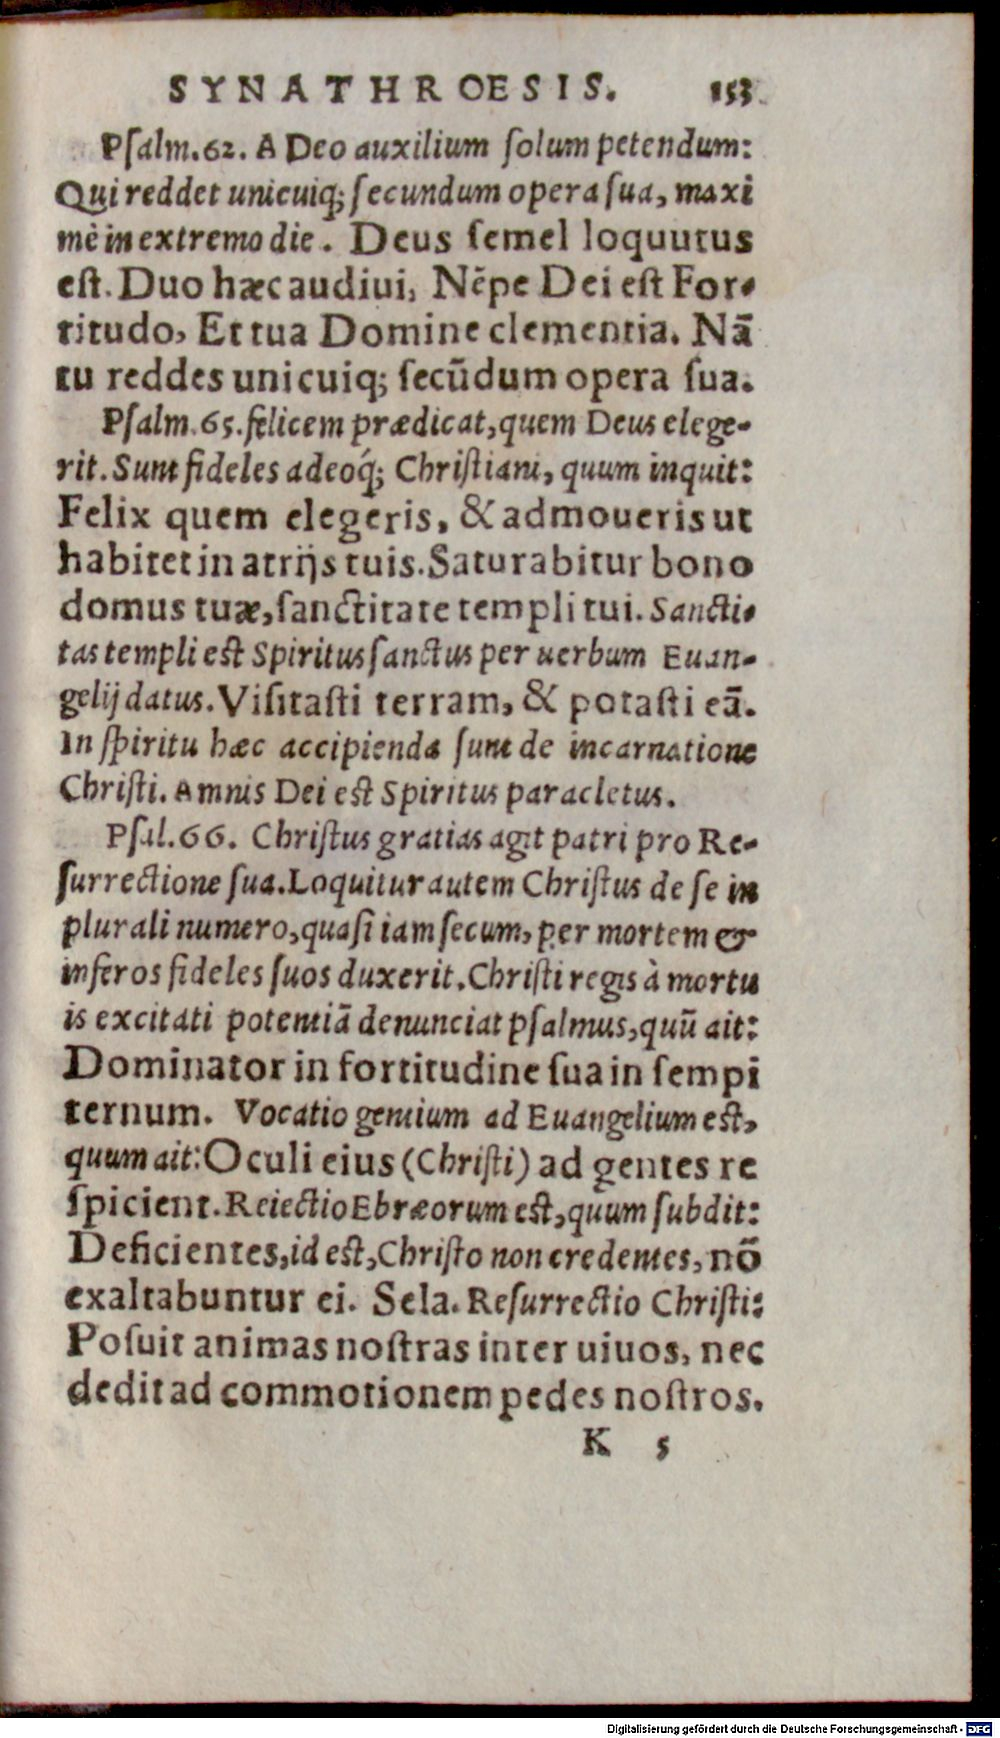 SYNATHROESIS. 153
Pſalm. 62. A Deo auxilium ſolum petendum:
Qui reddet unicuiq; ſecundum opera ſua, maxi
mè in extremo die. Deus ſemel loquutus
eſt. Duo hæc audiui, Nēpe Dei eſt For-
titudo, Et tua Domine clementia. Nā
tu reddes unicuiq; ſecūdum opera ſua.
Pſalm. 65. felicem prædicat, quem Deus elege-
rit. Sunt fideles adeoq́; Chriſtiani, quum inquit:
Felix quem elegeris, & admoueris ut
habitet in atrijs tuis. Saturabitur bono
domus tuæ, ſanctitate templi tui. Sancti-
tas templi eſt Spiritus ſanctus per uerbum Euan-
gelij datus. Viſitaſti terram, & potaſti eā.
In ſpiritu hæc accipienda ſunt de incarnatione
Chriſti. Amnis Dei eſt Spiritus paracletus.
Pſal. 66. Chriſtus gratias agit patri pro Re-
ſurrectione ſua. Loquitur autem Chriſtus de ſe in
plurali numero, quaſi iam ſecum, per mortem &
inferos fideles ſuos duxerit. Chriſti regis à mortu
is excitati potentiā denunciat pſalmus, quū ait:
Dominator in fortitudine ſua in ſempi
ternum. Vocatio gentium ad Euangelium eſt,
quum ait: Oculi eius (Chriſti) ad gentes re
ſpicient. Reiectio Ebræorum eſt, quum ſubdit:
Deficientes, id eſt, Chriſto non credentes, nō
exaltabuntur ei. Sela. Reſurrectio Chriſti:
Poſuit animas noſtras inter uiuos, nec
dedit ad commotionem pedes noſtros.
K 5
Digitalisierung gefördert durch die Deutsche Forschungsgemeinschaft - DFG